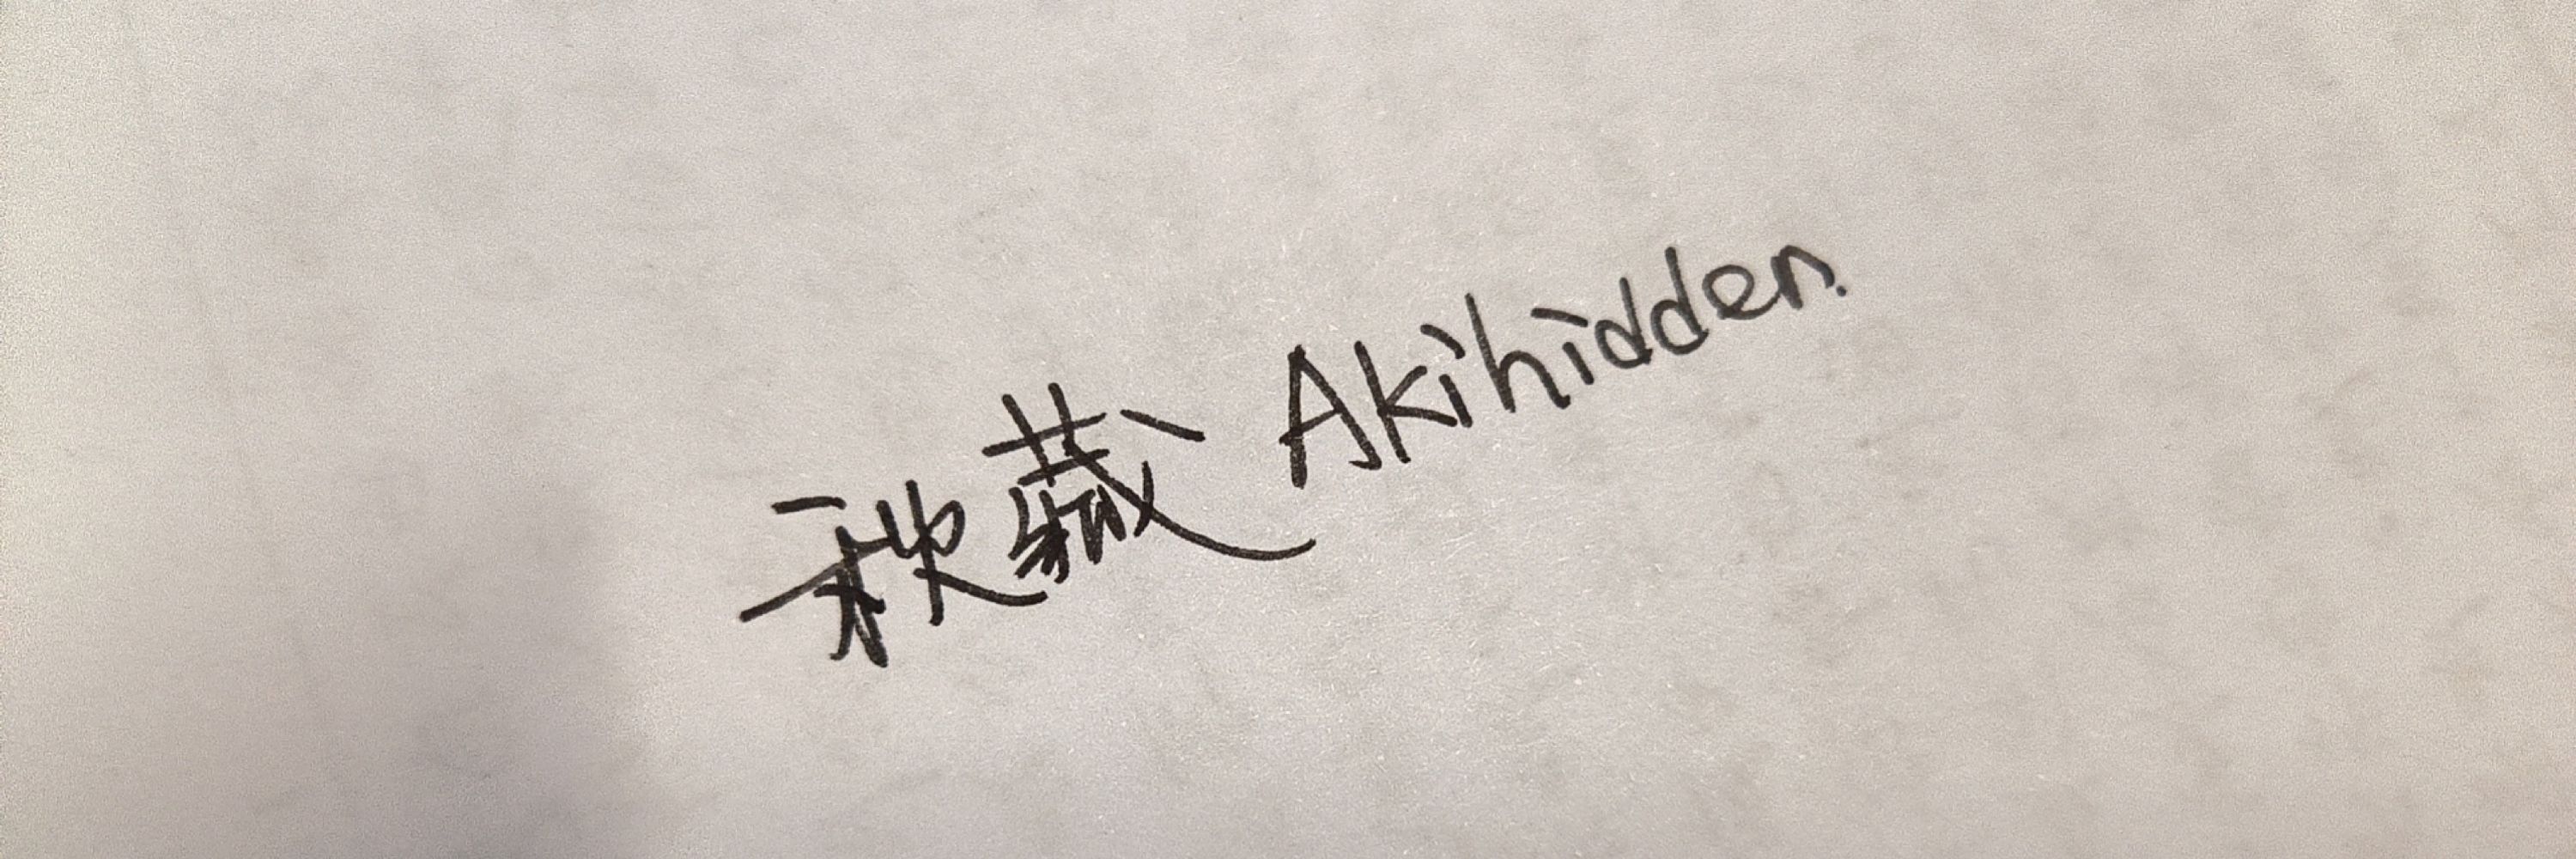 秋藏 Akihidden